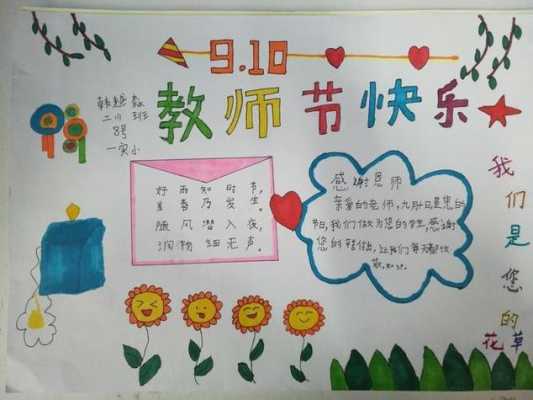 9.10
教师节快乐
二(1)班
8号
一实小
好雨知时节，
春乃发生。
随风潜入夜，
润物细无声。
感谢恩师
亲爱的老师，九月十日是您的
节，我们做为您的学生，感谢
您的
我们是您的花草